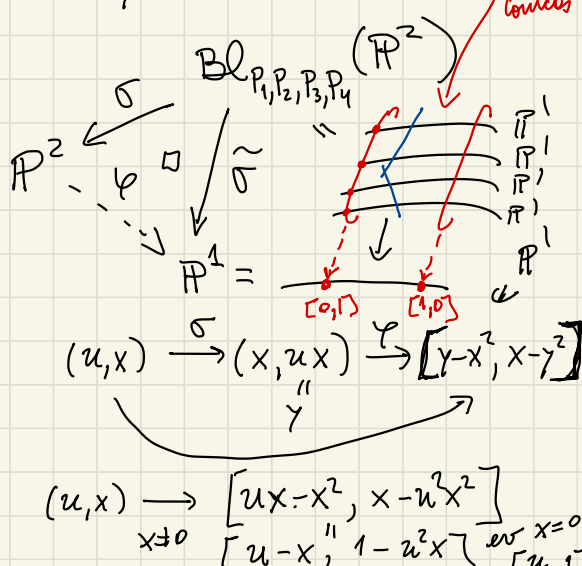 conics
Bl_{P_1,P_2,P_3,P_4}(ℙ^2)
σ
ℙ^2 φ □ σ̃ "
ℙ^1
ℙ^1
ℙ^1
ℙ^1
ℙ^1
ℙ^1 =
[0,1] [1,0]
(u,x) →^σ (x,ux) →^φ [y-x^2, x-y^2]
"
y
(u,x) → [ux-x^2, x-u^2x^2]
x≠0 "
[u-x, 1-u^2x] ev x=0
[u,